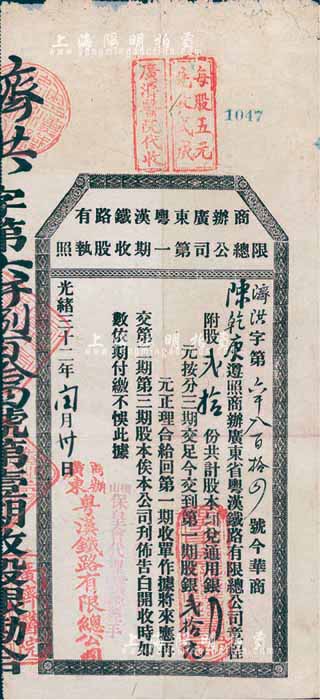 上海陽明拍賣
每股五元
先收弍成
廣濟醫院代收
1047
商辦廣東粵漢鐵路有
限總公司第一期收股執照
濟洪字第六千八百拾四號今華商
陳乾庚遵照商辦廣東省粵漢鐵路有限總公司章程
附股弍拾份共計股本
通用銀
元按分三期交足今交到第一期股銀弍拾元
元正理合給回第一期收單作據將來應再
交第二期第三期股本俟本公司刋佈告白開收時如
數依期付繳不悞此據
光緒三十二年閏月卅日
商辦廣東粵漢鐵路有限總公司
濟洪字第六千捌百拾四號第壹期收股銀勘合